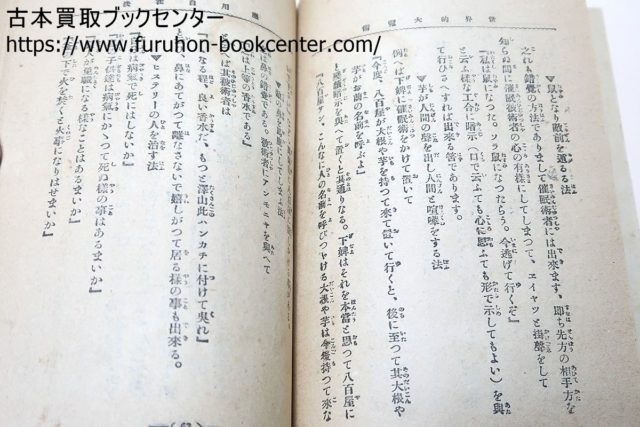 古本買取ブックセンター
https://www.furuhon-bookcenter.com/
世界的大魔術
▼鼠となり敵前を遁るる法
之れも錯覺の方法でありまして催眠術者には出來ます、即ち先方の相手方を
知らぬ間に催眠術者の心の有樣にしてしまつて、エイヤツと掛聲をして
『私は鼠になつた。ソラ鼠になつたらう。今逃げて行くぞ』
と云ふ樣な工合に暗示（口で云ふても心に思ふても形で示してもよい）を與へ
て行ひさへすれば出來る筈であります。
▼芋が人間の聲を出し人間と喧嘩をする法
例へば下婢に催眠術をかけて置いて
『今度、八百屋が大根や芋を持つて來て置いて行くと、後に至つて其大根や
芋がお前の名前を呼ぶよ』
と殘續暗示を與へて置くと其通りなる。下婢はそれを本當と思つて八百屋に
『八百屋サン、こんなに人の名前を呼びツける大根や芋は今度持つて來な
は鼻の錯覺である。被術者にアンモニヤを與へて
は上等の香水である』
ば其被術者は
『なる程、良い香水だ、もつと澤山此ハンカチに付けて呉れ』
鼻にあてがつて離なさないで嬉しがつて居る樣の事も出來る。
▼ヒステリーの人を治す法
は病氣で死にはしないか』
子供達は病氣にかゝつて死ぬ樣の事はあるまいか』
人が盜賊になる樣なことはあるまいか』
下で火を焚くと火事になりはせまいか』